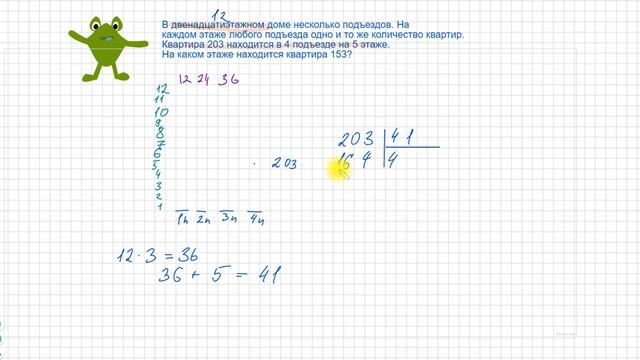 12
В двенадцатиэтажном доме несколько подъездов. На
каждом этаже любого подъезда одно и то же количество квартир.
Квартира 203 находится в 4 подъезде на 5 этаже.
На каком этаже находится квартира 153?
12 24 36
12
11
10
9
8
7
6
5
4
3
2
1
203
203 41
164 4
1п 2п 3п 4п
12 · 3 = 36
36 + 5 = 41